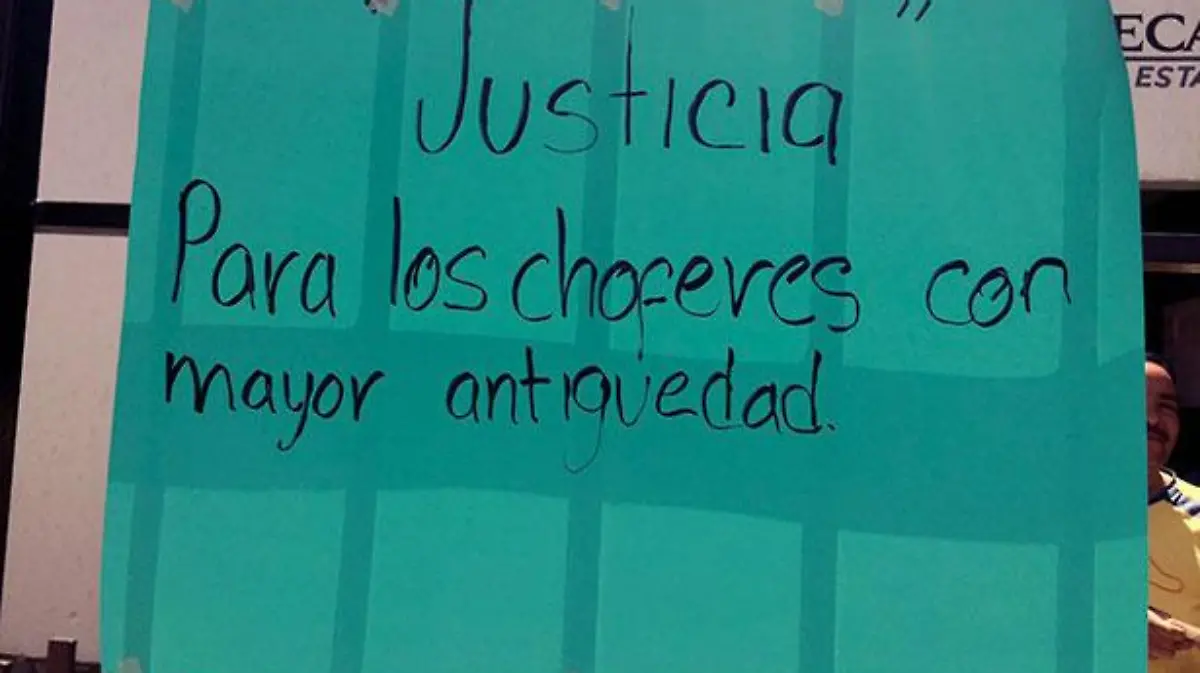 Justicia ”
Para los choferes con
mayor antiguedad.
ECA
ESTA